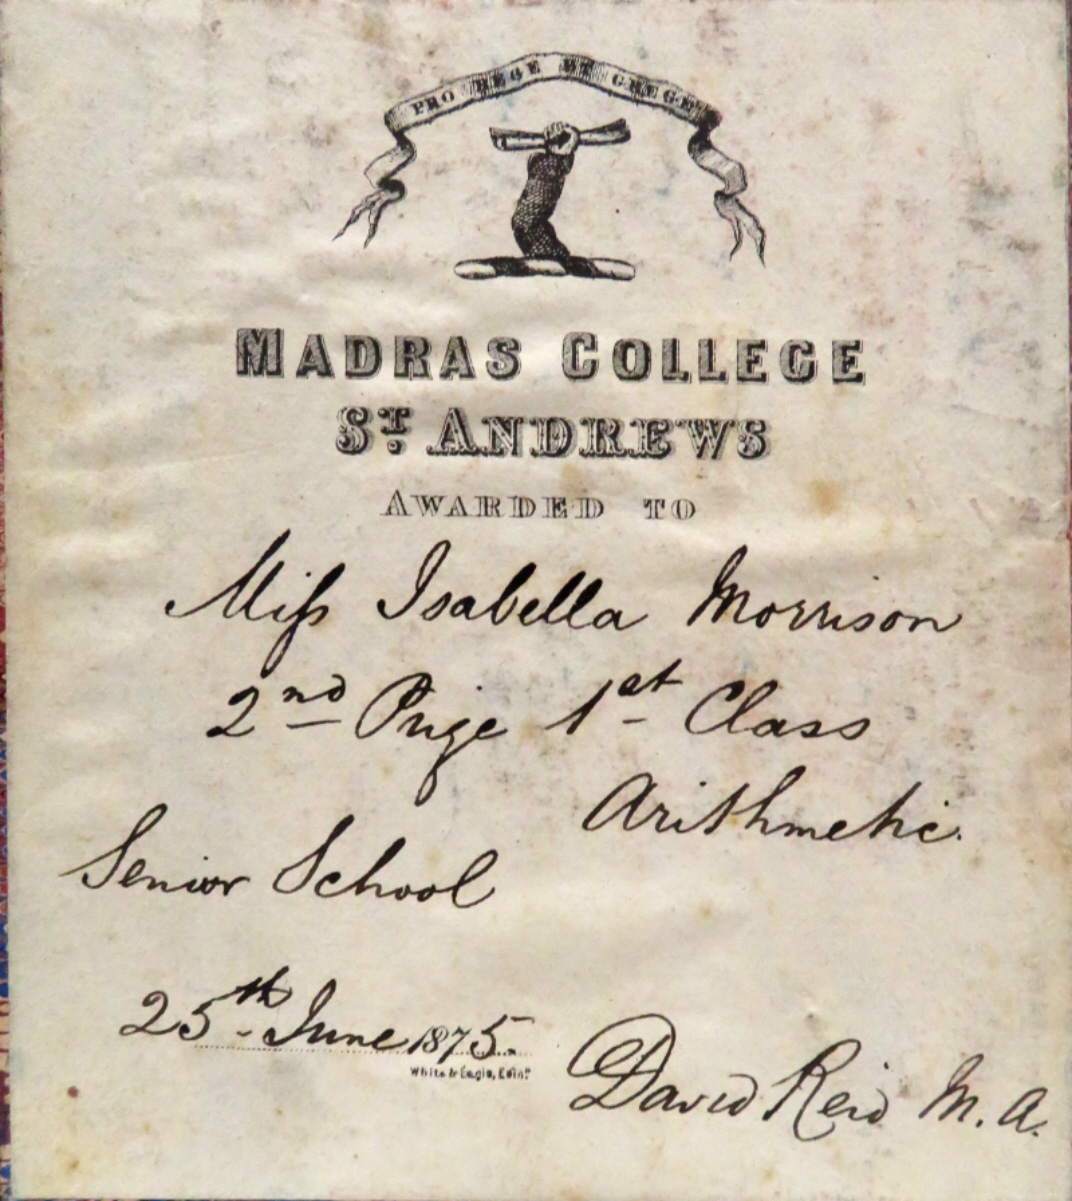 PRO REGE ET GREGE
MADRAS COLLEGE
ST. ANDREWS
AWARDED TO
Miſs Isabella Morrison
2nd Prize 1st Class
Arithmetic.
Senior School
25th June 1875.
White & Eagle, Edinr.
David Reid M.A.